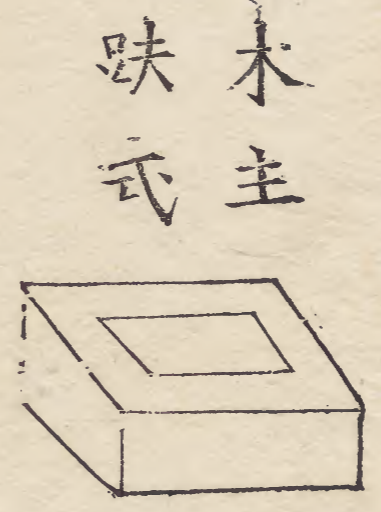 木主
趺式